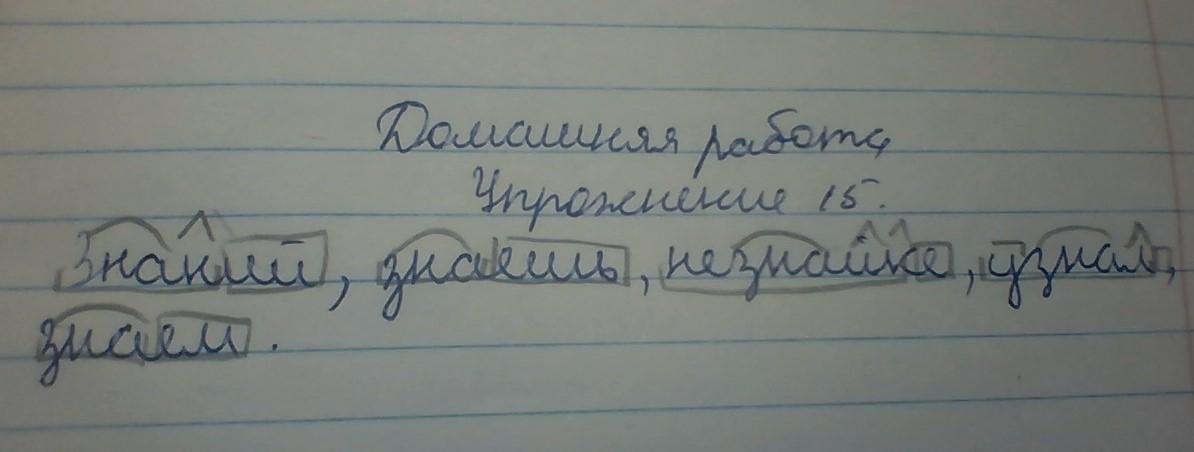 Домашняя работа
Упражнение 15.
Знаний, знаешь, незнайке, узнал,
знаем.